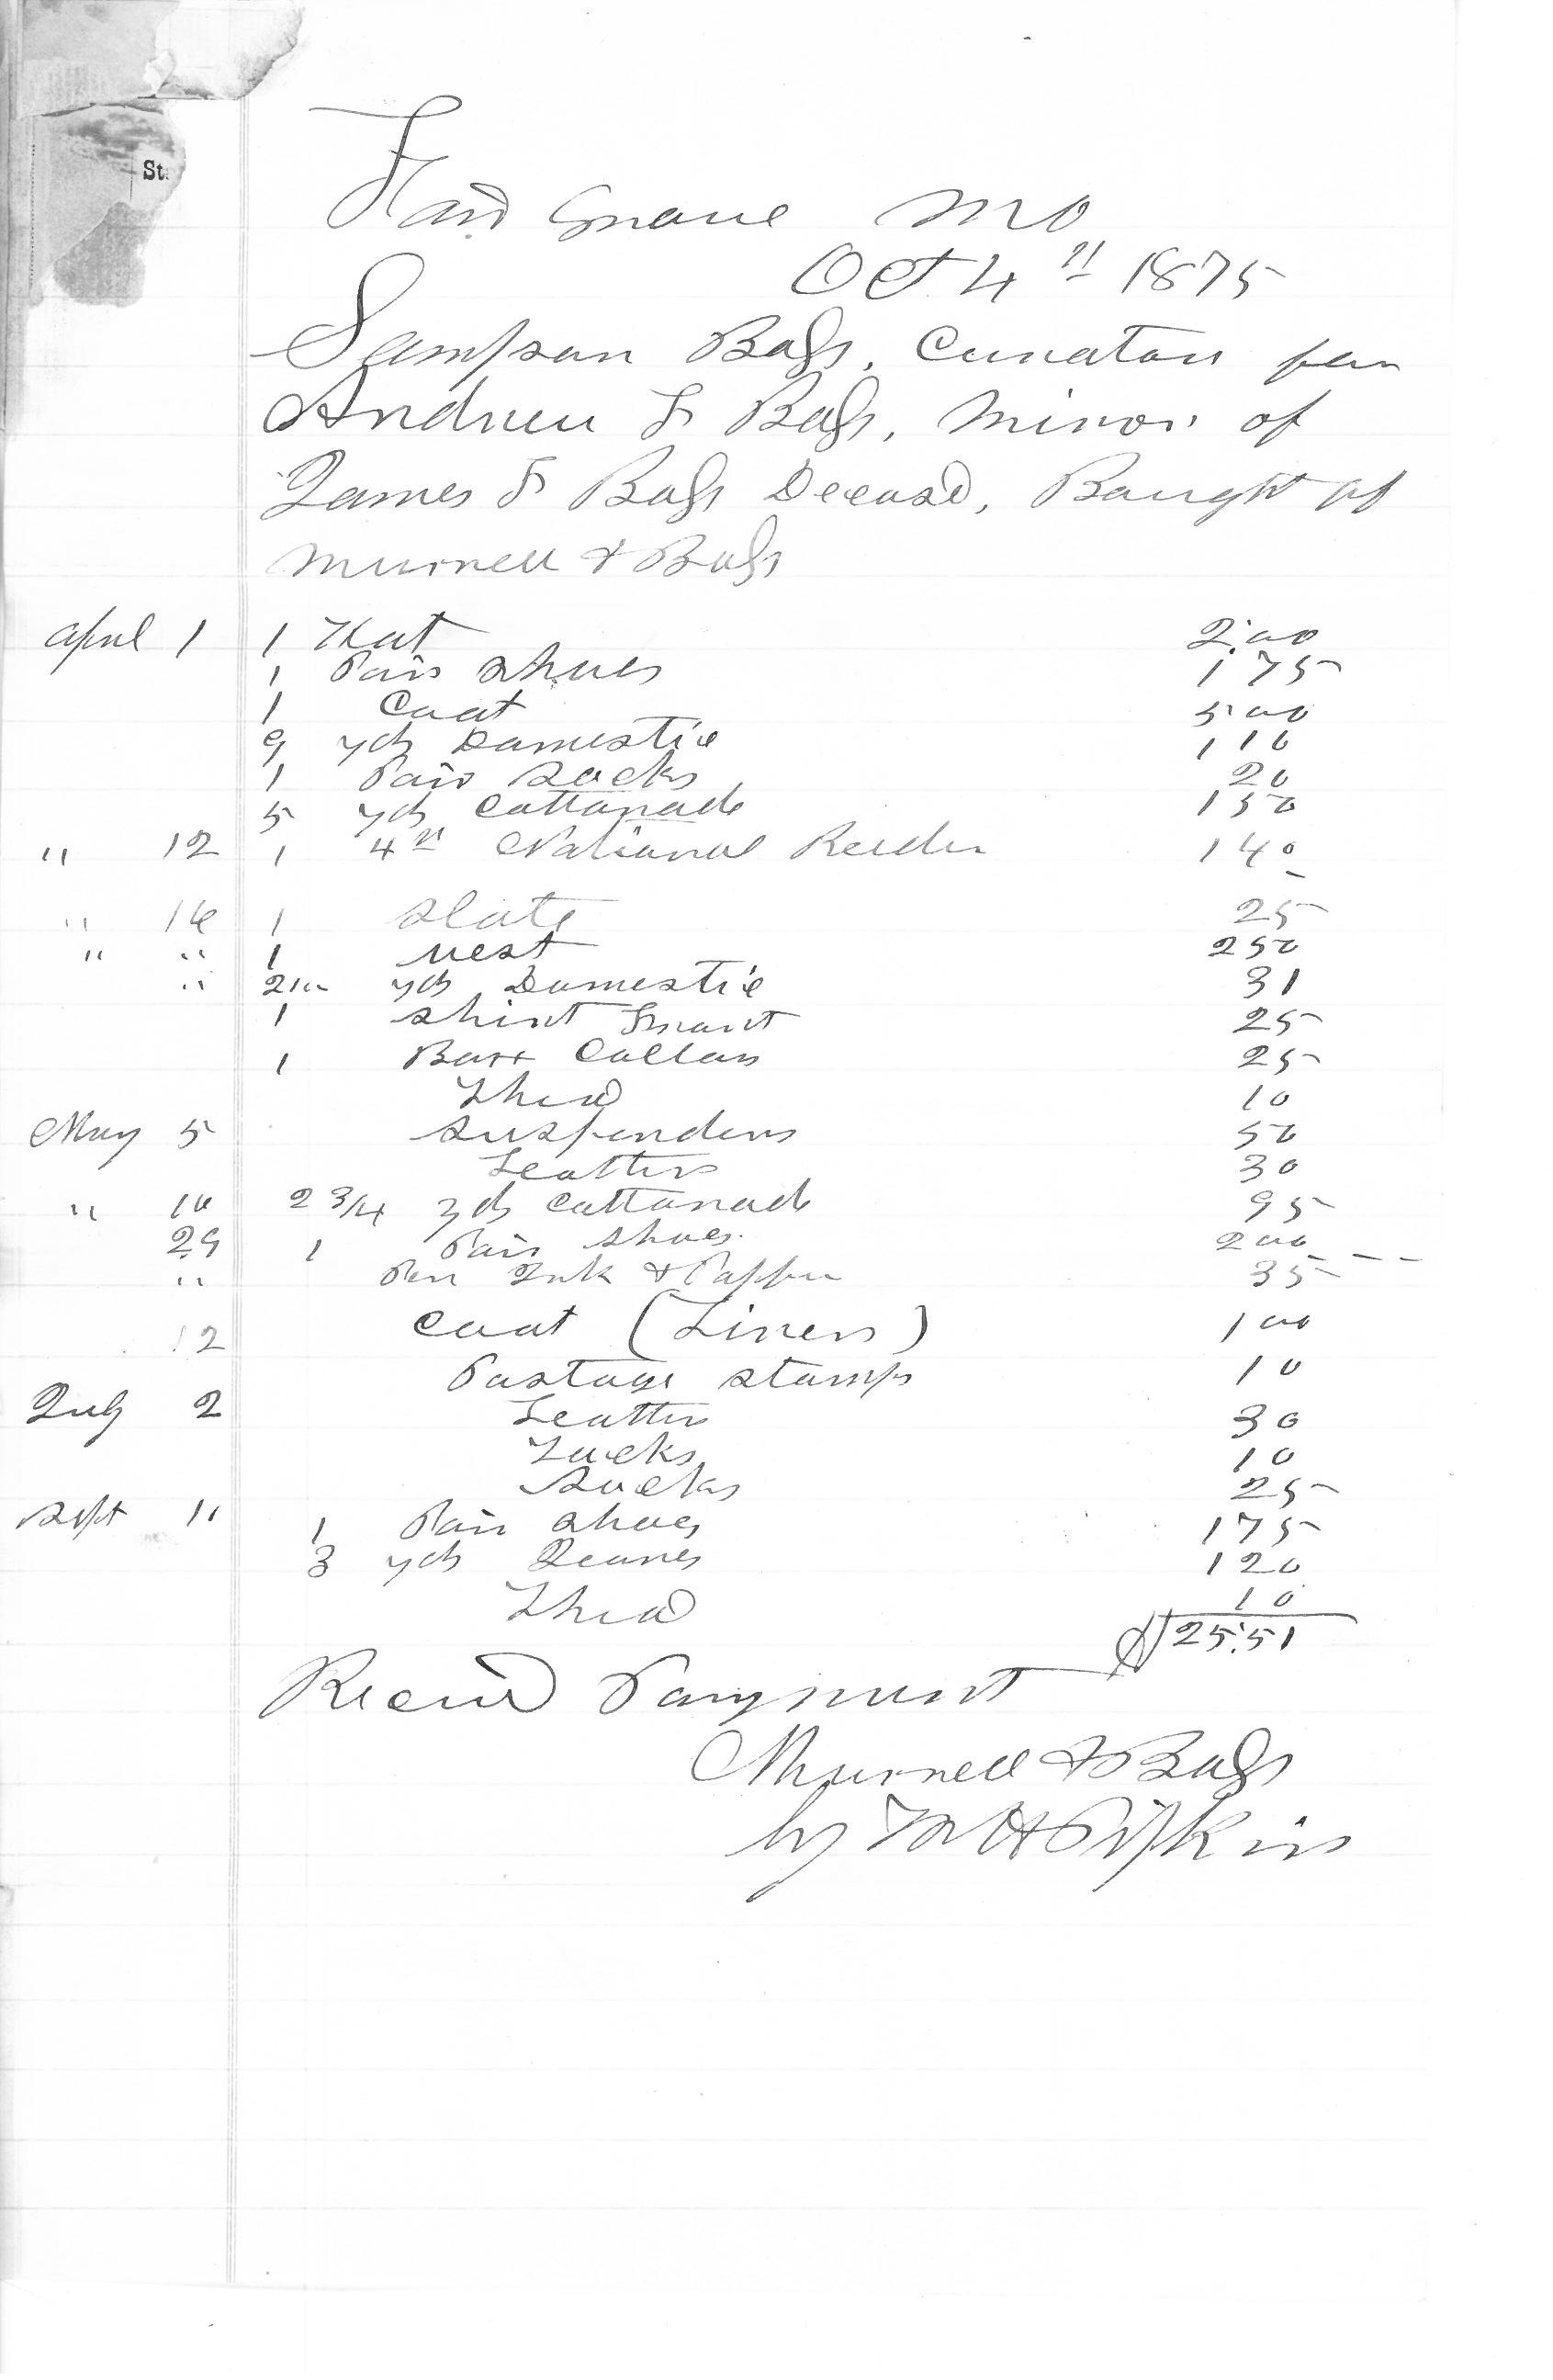 St.
Fair Grove Mo
Oct 4th 1875
Sampson Bass, Curator for
Andrew F Bass, Minor of
James F Bass Deceasd, Baught of
Murrell & Bass
April 1 1 Hat 2.00
1 Pair Shoes 175
1 Coat 500
9 yds Domestic 110
1 Pair Socks 20
5 yds Cottonade 150
" 12 1 4th National Reader 140
" 16 1 Slate 25
" " 1 Vest 250
" yds Domestic 31
1 Shirt Front 25
1 Box Collars 25
Thred 10
May 5 Suspenders 50
Leather 30
" 10 2 3/4 yds Cottonade 95
29 1 Pair Shoes 200
" Pen Ink & Papper 35
12 Coat (Linen) 100
Postage Stamps 10
July 2 Leather 30
Tacks 10
Socks 25
Sept 11 1 Pair Shoes 175
3 yds Jeanes 120
Thred 10
$25.51
Recivd Payment
Murrell & Bass
by